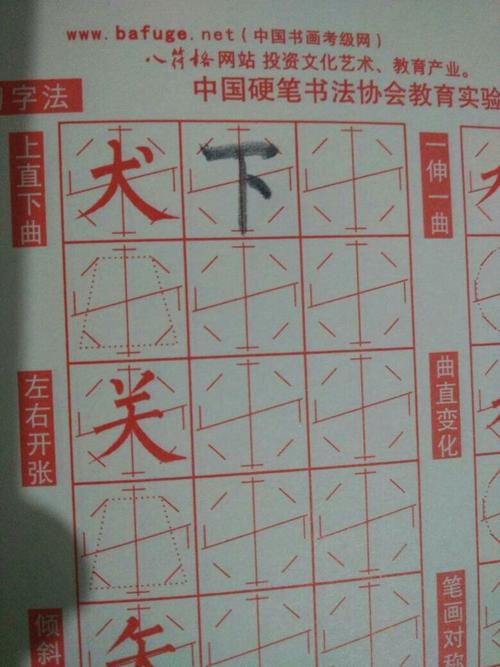 www.bafuge.net(中国书画考级网)
八符格网站 投资文化艺术、教育产业。
中国硬笔书法协会教育实验
字法
上直下曲
犬
下
一伸一曲
左右开张
关
曲直变化
倾斜
矢
笔画对称